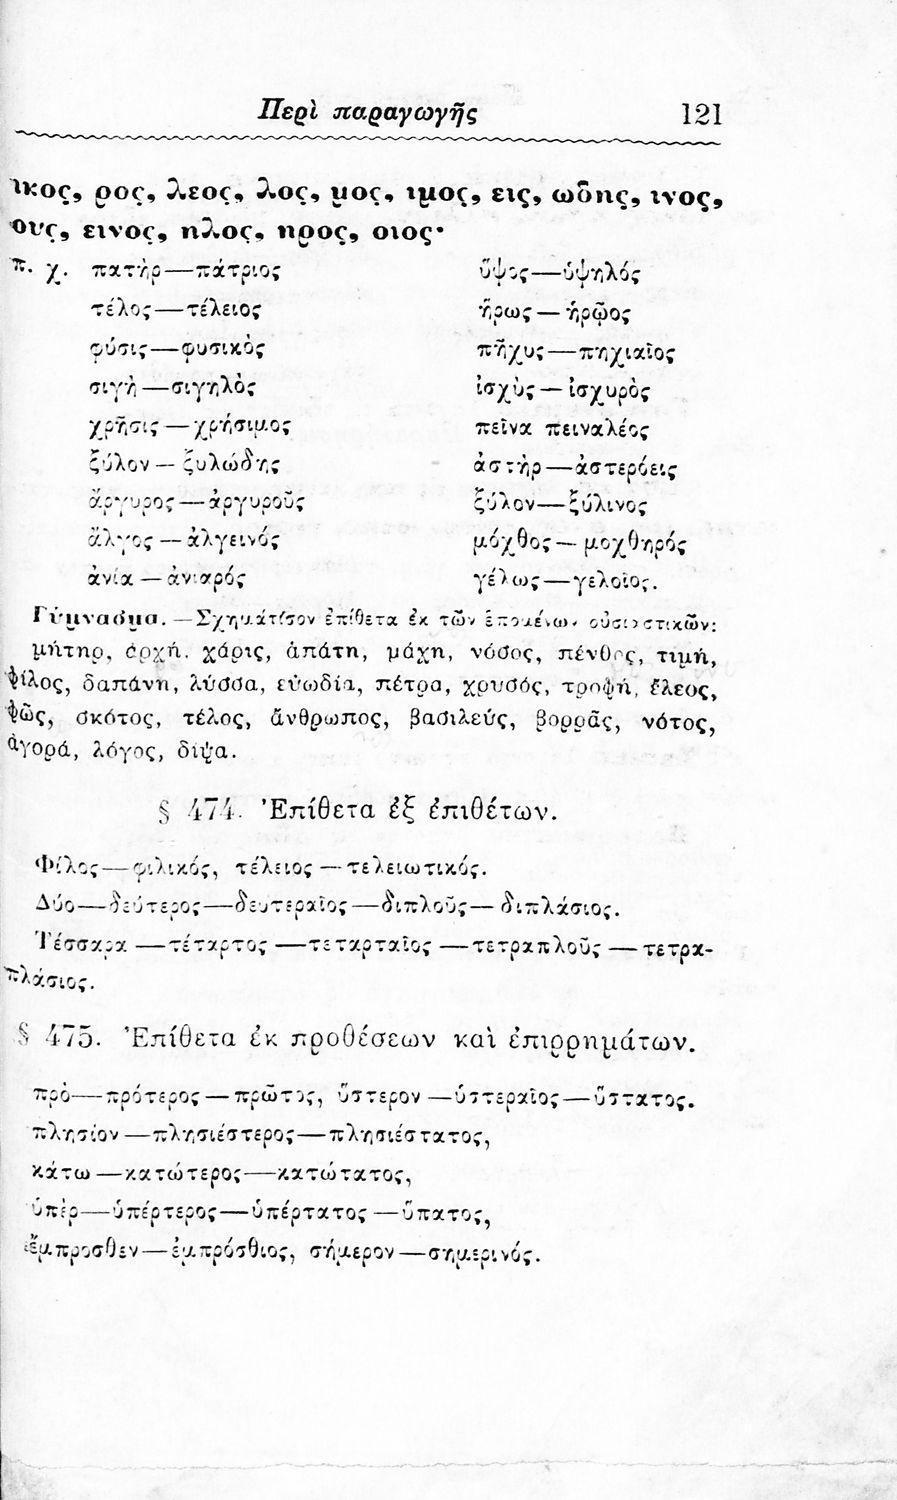 Περὶ παραγωγῆς 121
ικος, ρος, λεος, λος, μος, ιμος, εις, ωδης, ινος,
ους, εινος, ηλος, ηρος, οιος·
π. χ. πατὴρ—πάτριος ὕψος—ὑψηλός
τέλος—τέλειος ἥρως—ἡρῷος
φύσις—φυσικὸς πῆχυς—πηχιαῖος
σιγὴ—σιγηλὸς ἰσχὺς—ἰσχυρὸς
χρῆσις—χρήσιμος πεῖνα πειναλέος
ξύλον—ξυλώδης ἀστὴρ—ἀστερόεις
ἄργυρος—ἀργυροῦς ξύλον—ξύλινος
ἄλγος—ἀλγεινός μόχθος—μοχθηρός
ἀνία—ἀνιαρός γέλως—γελοῖος.
Γύμνασμα.—Σχημάτισον ἐπίθετα ἐκ τῶν ἑπομένων οὐσιαστικῶν:
μήτηρ, ἀρχή. χάρις, ἀπάτη, μάχη, νόσος, πένθος, τιμή,
φίλος, δαπάνη, λύσσα, εὐωδία, πέτρα, χρυσός, τροφή, ἔλεος,
φῶς, σκότος, τέλος, ἄνθρωπος, βασιλεύς, βορρᾶς, νότος,
ἀγορά, λόγος, δίψα.
§ 474. Ἐπίθετα ἐξ ἐπιθέτων.
Φίλος—φιλικός, τέλειος—τελειωτικός.
Δύο—δεύτερος—δευτεραῖος—διπλοῦς—διπλάσιος.
Τέσσαρα—τέταρτος—τεταρταῖος—τετραπλοῦς—τετρα-
πλάσιος.
§ 475. Ἐπίθετα ἐκ προθέσεων καὶ ἐπιρρημάτων.
πρὸ—πρότερος—πρῶτος, ὕστερον—ὑστεραῖος—ὕστατος.
πλησίον—πλησιέστερος—πλησιέστατος,
κάτω—κατώτερος—κατώτατος,
ὑπὲρ—ὑπέρτερος—ὑπέρτατος—ὕπατος,
ἔμπροσθεν—ἐμπρόσθιος, σήμερον—σημερινός.